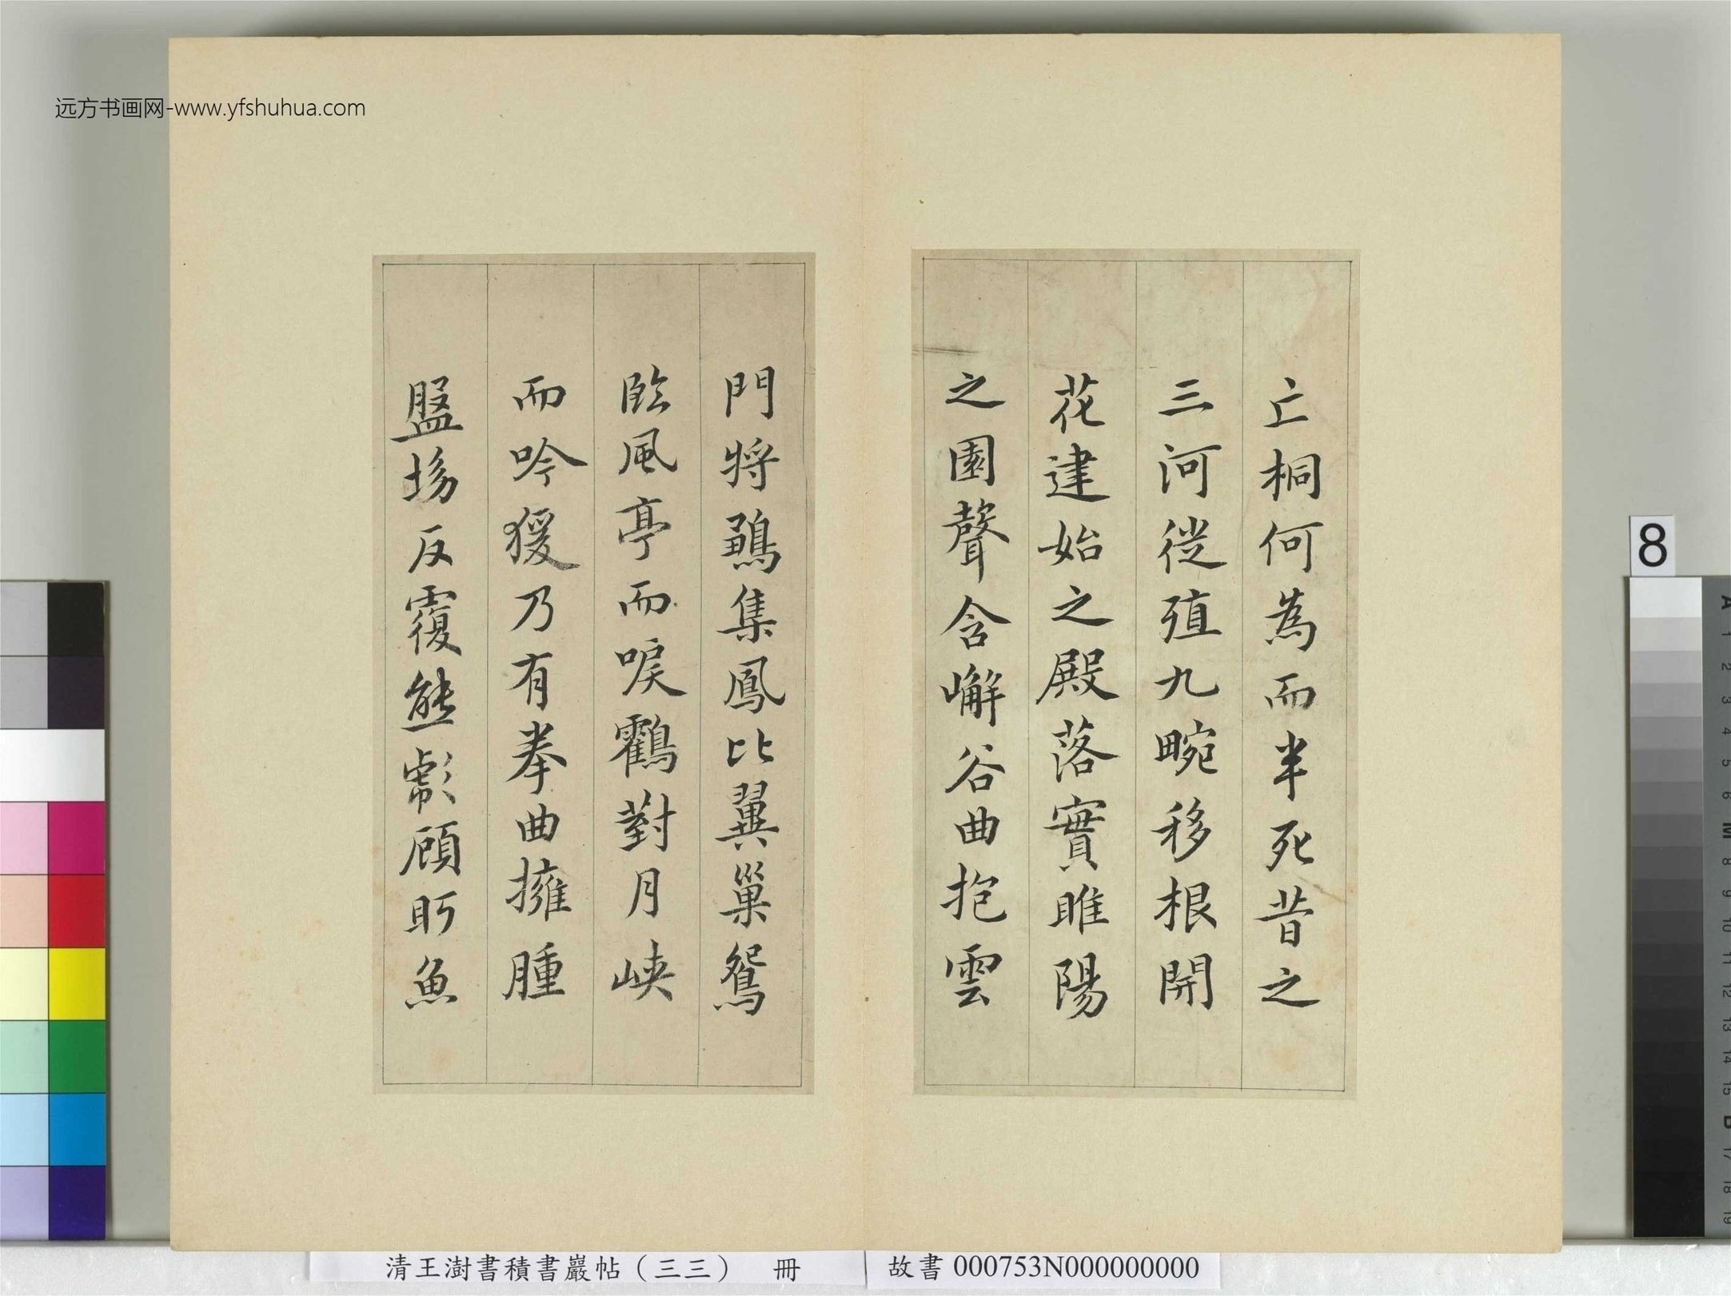 远方书画网-www.yfshuhua.com
亡桐何為而半死昔之
三河徙殖九畹移根開
花建始之殿落實睢陽
之園聲含嶰谷曲抱雲
門將鶵集鳳比翼巢鴛
臨風亭而唳鸖對月峽
而吟猨乃有拳曲擁腫
坳反覆熊彪顧眄魚
清王澍書積書巖帖（三三） 冊
故書 000753N000000000
8
A
M
B